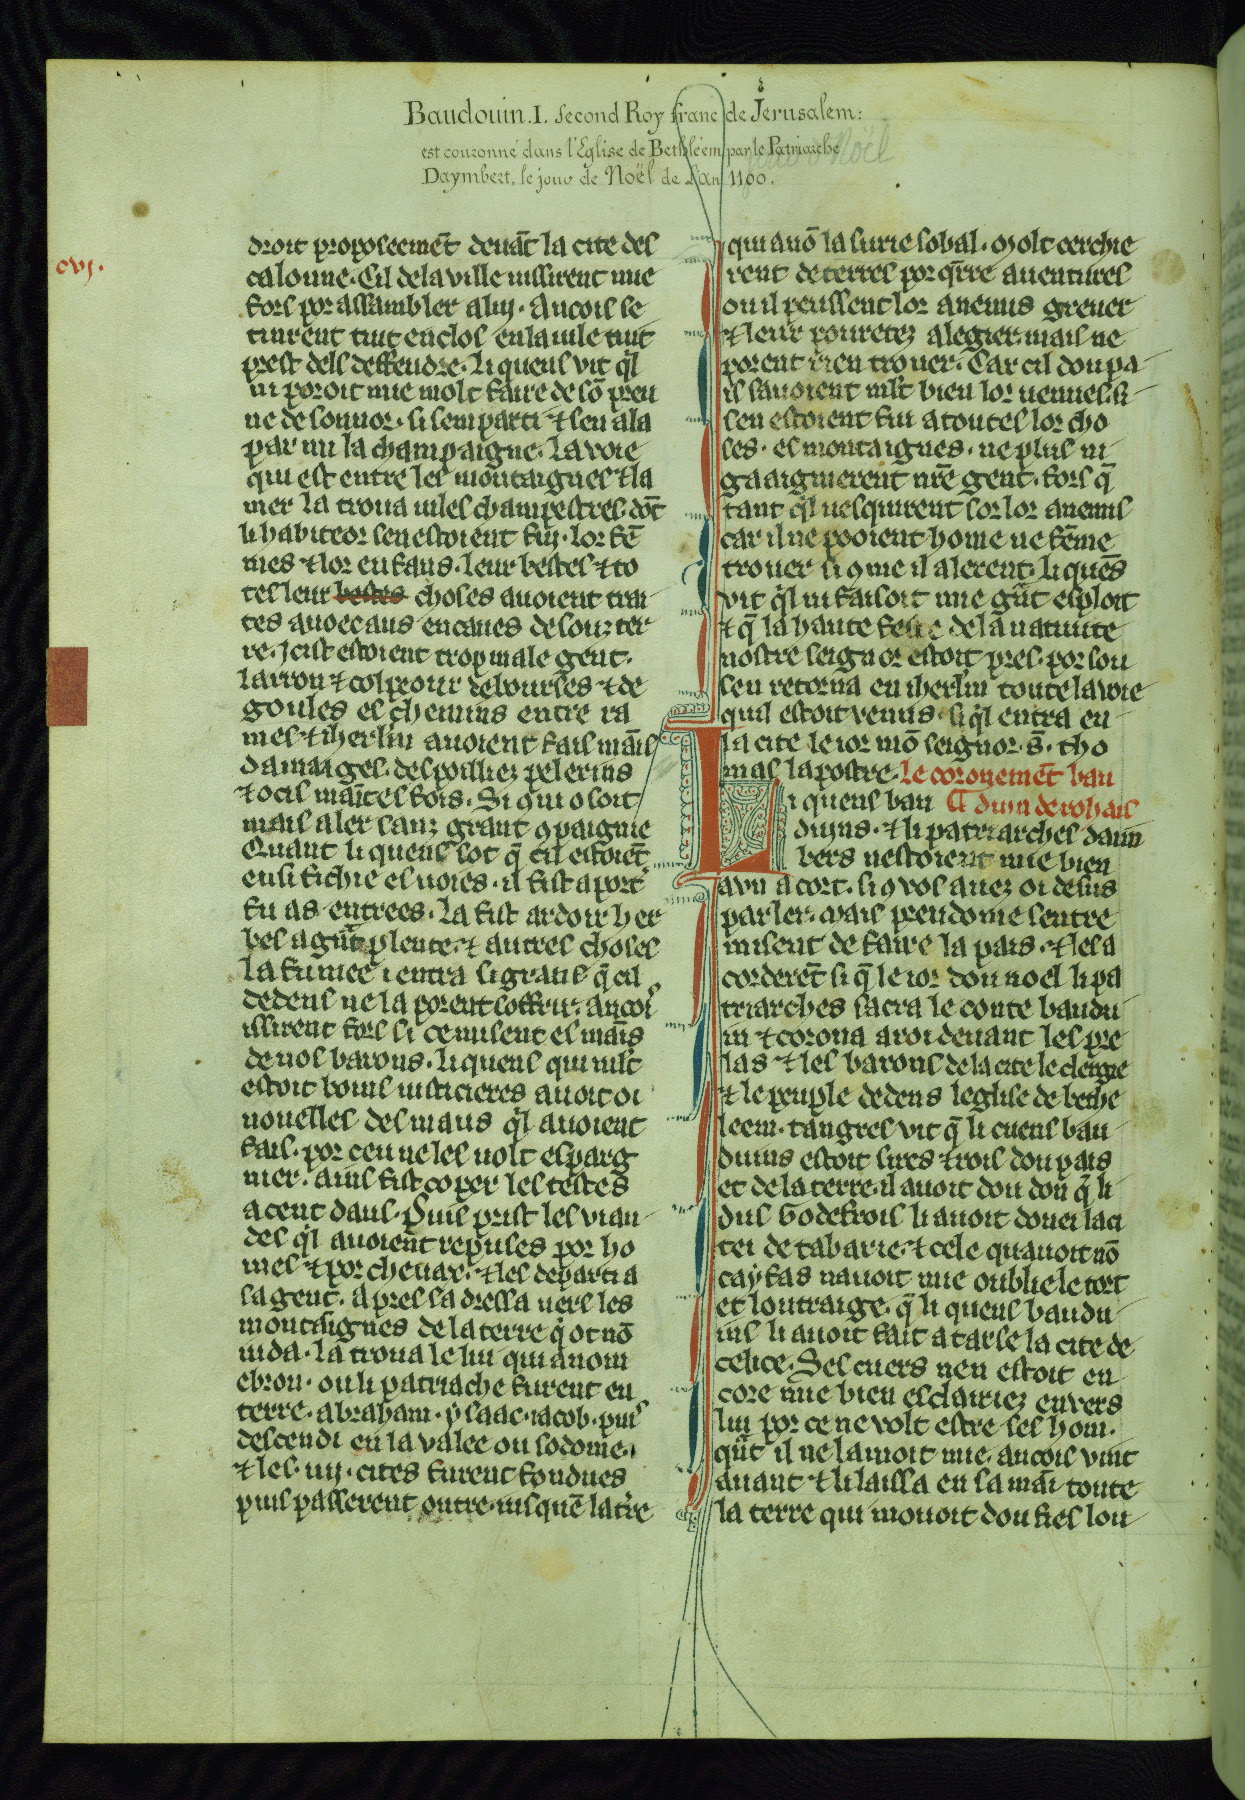 Baudouin.I. Second Roy franc de Jerusalem:
est couronné dans l'Eglise de Bethléem par le Patriarche
Daymbert, le jour de Noël de l'an 1100.
cvj.
droit proposeemēt devāt la cite des
calonne. Cil de la ville nissirent mie
fors por assambler a luj. Ancois se
tinrent tuit enclos en la vile tuit
prest dels deffendre. Li quens vit q̄l
ni poroit mie molt faire de sō preu
ne de sonnor. si sem parti ⁊ sen ala
par mi la champaigne. La voie
qui est entre les mōtaignes ⁊ la
mer la trova viles champestres. dōt
li habiteor sen estoient fuj. lor fē
mes ⁊ lor enfans. leur bestes ⁊ to
tes leur bestes choses avoient trai
tes avoec aus en caves desouz ter
re. Jcist estoient trop male gent.
larron ⁊ colpeour de bourses ⁊ de
goules es chemins entre ra
mes ⁊ iherlm avoient fais māis
damaiges. des poilliez pelerins
⁊ ocis maītes fois. Si qui osoit
mais aler sanz grant ꝯpaignie
Quant li quens sot q̄ cil estoiēt
ensi fichie es voies. il fist aport'
fu as entrees. la fist ardoir her
bes a grāt plente. ⁊ autres choses
la fumee i entra si grans q̄ cil
dedens ne la porent soffrir. ancois
issirent fors si ce misent es māis
de nos barons. li quens qui mlt
estoit boins iusticieres avoit oi
nouelles des maus q̄l avoient
fais. por ceu ne les volt esparg
nier. ains fist coper les testes
a cent daus. Puis prist les vian
des q̄l avoient repuses por ho
mes ⁊ por chevax. ⁊ les departi a
sa gent. Apres sa dressa vers les
montaignes de la terre q̄ ot nō
iuda. la trova le liu qui a nom
ebron. ou li patriache furent en
terre. abraham. ysaac. iacob. puis
descendi en la valee ou sodome.
⁊ les .iiij. cites furent fondues
puis passerent outre. iusquē la t're
qui a nō la surie sobal. Molt cerchie
rent de terres por q̄rre aventures
ou il peussent lor anemis grever
⁊ leur pouretez alegier. mais ne
porent rien trover. Car cil dou pa
is savoient mlt bien lor venues. si
sen estoient fui a toutes lor cho
ses. es montaignes. ne plus ni
gaaignierent nr̄e gent. fors q̄
tant q̄l vesquirent sor lor anemis
car il ne pooient home ne fēme
trover si ꝯme il alerent. li quēs
vit q̄l ni faisoit mie grāt esploit
⁊ q̄ la haute feste de la nativite
nostre seignor estoit pres. por sou
sen retorna en iherlm toute la voie
quil estoit venus. si q̄l entra en
la cite le ior mō seignor .s. tho
mas lapostre. Le coronemēt bau
duin de rohais
Li quens bau
duyns. ⁊ li patriarches daim
bers nestoient mie bien
avn acort. si ꝯ vos avez oi desus
parler. Mais preudome sentre
misent de faire la pais. ⁊ les a
corderēt si q̄ le ior dou noel li pa
triarches sacra le conte baudu
in ⁊ corona a roi devant les pre
las ⁊ les barons de la cite le clergie
⁊ le peuple dedens leglise de bethe
leem. tangres vit q̄ li cuens bau
duins estoit sires ⁊ rois dou pais
et de la terre. il avoit dou don q̄ li
dus Godefrois li avoit donei la ci
tei de tabarie. ⁊ cele qu avoit nō
cayfas navoit mie oublie le tort
et loutraige. q̄ li quens baudu
ins li avoit fait a tarse la cite de
celice. Ses cuers nen estoit en
core mie bien esclairiez envers
lui por ce ne volt estre ses hom.
q̄nt il ne lamoit mie. ancois vint
avant ⁊ li laissa en sa māi toute
la terre qui movoit dou fies lou